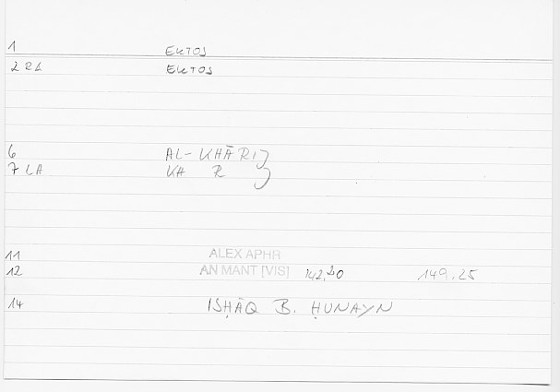 1 EKTOS
2 RL EKTOS
6 AL-KHĀRIJ
7 LA KH R J
11 ALEX APHR
12 AN MANT [VIS] 142,20 149,25
14 ISḤĀQ B. ḤUNAYN